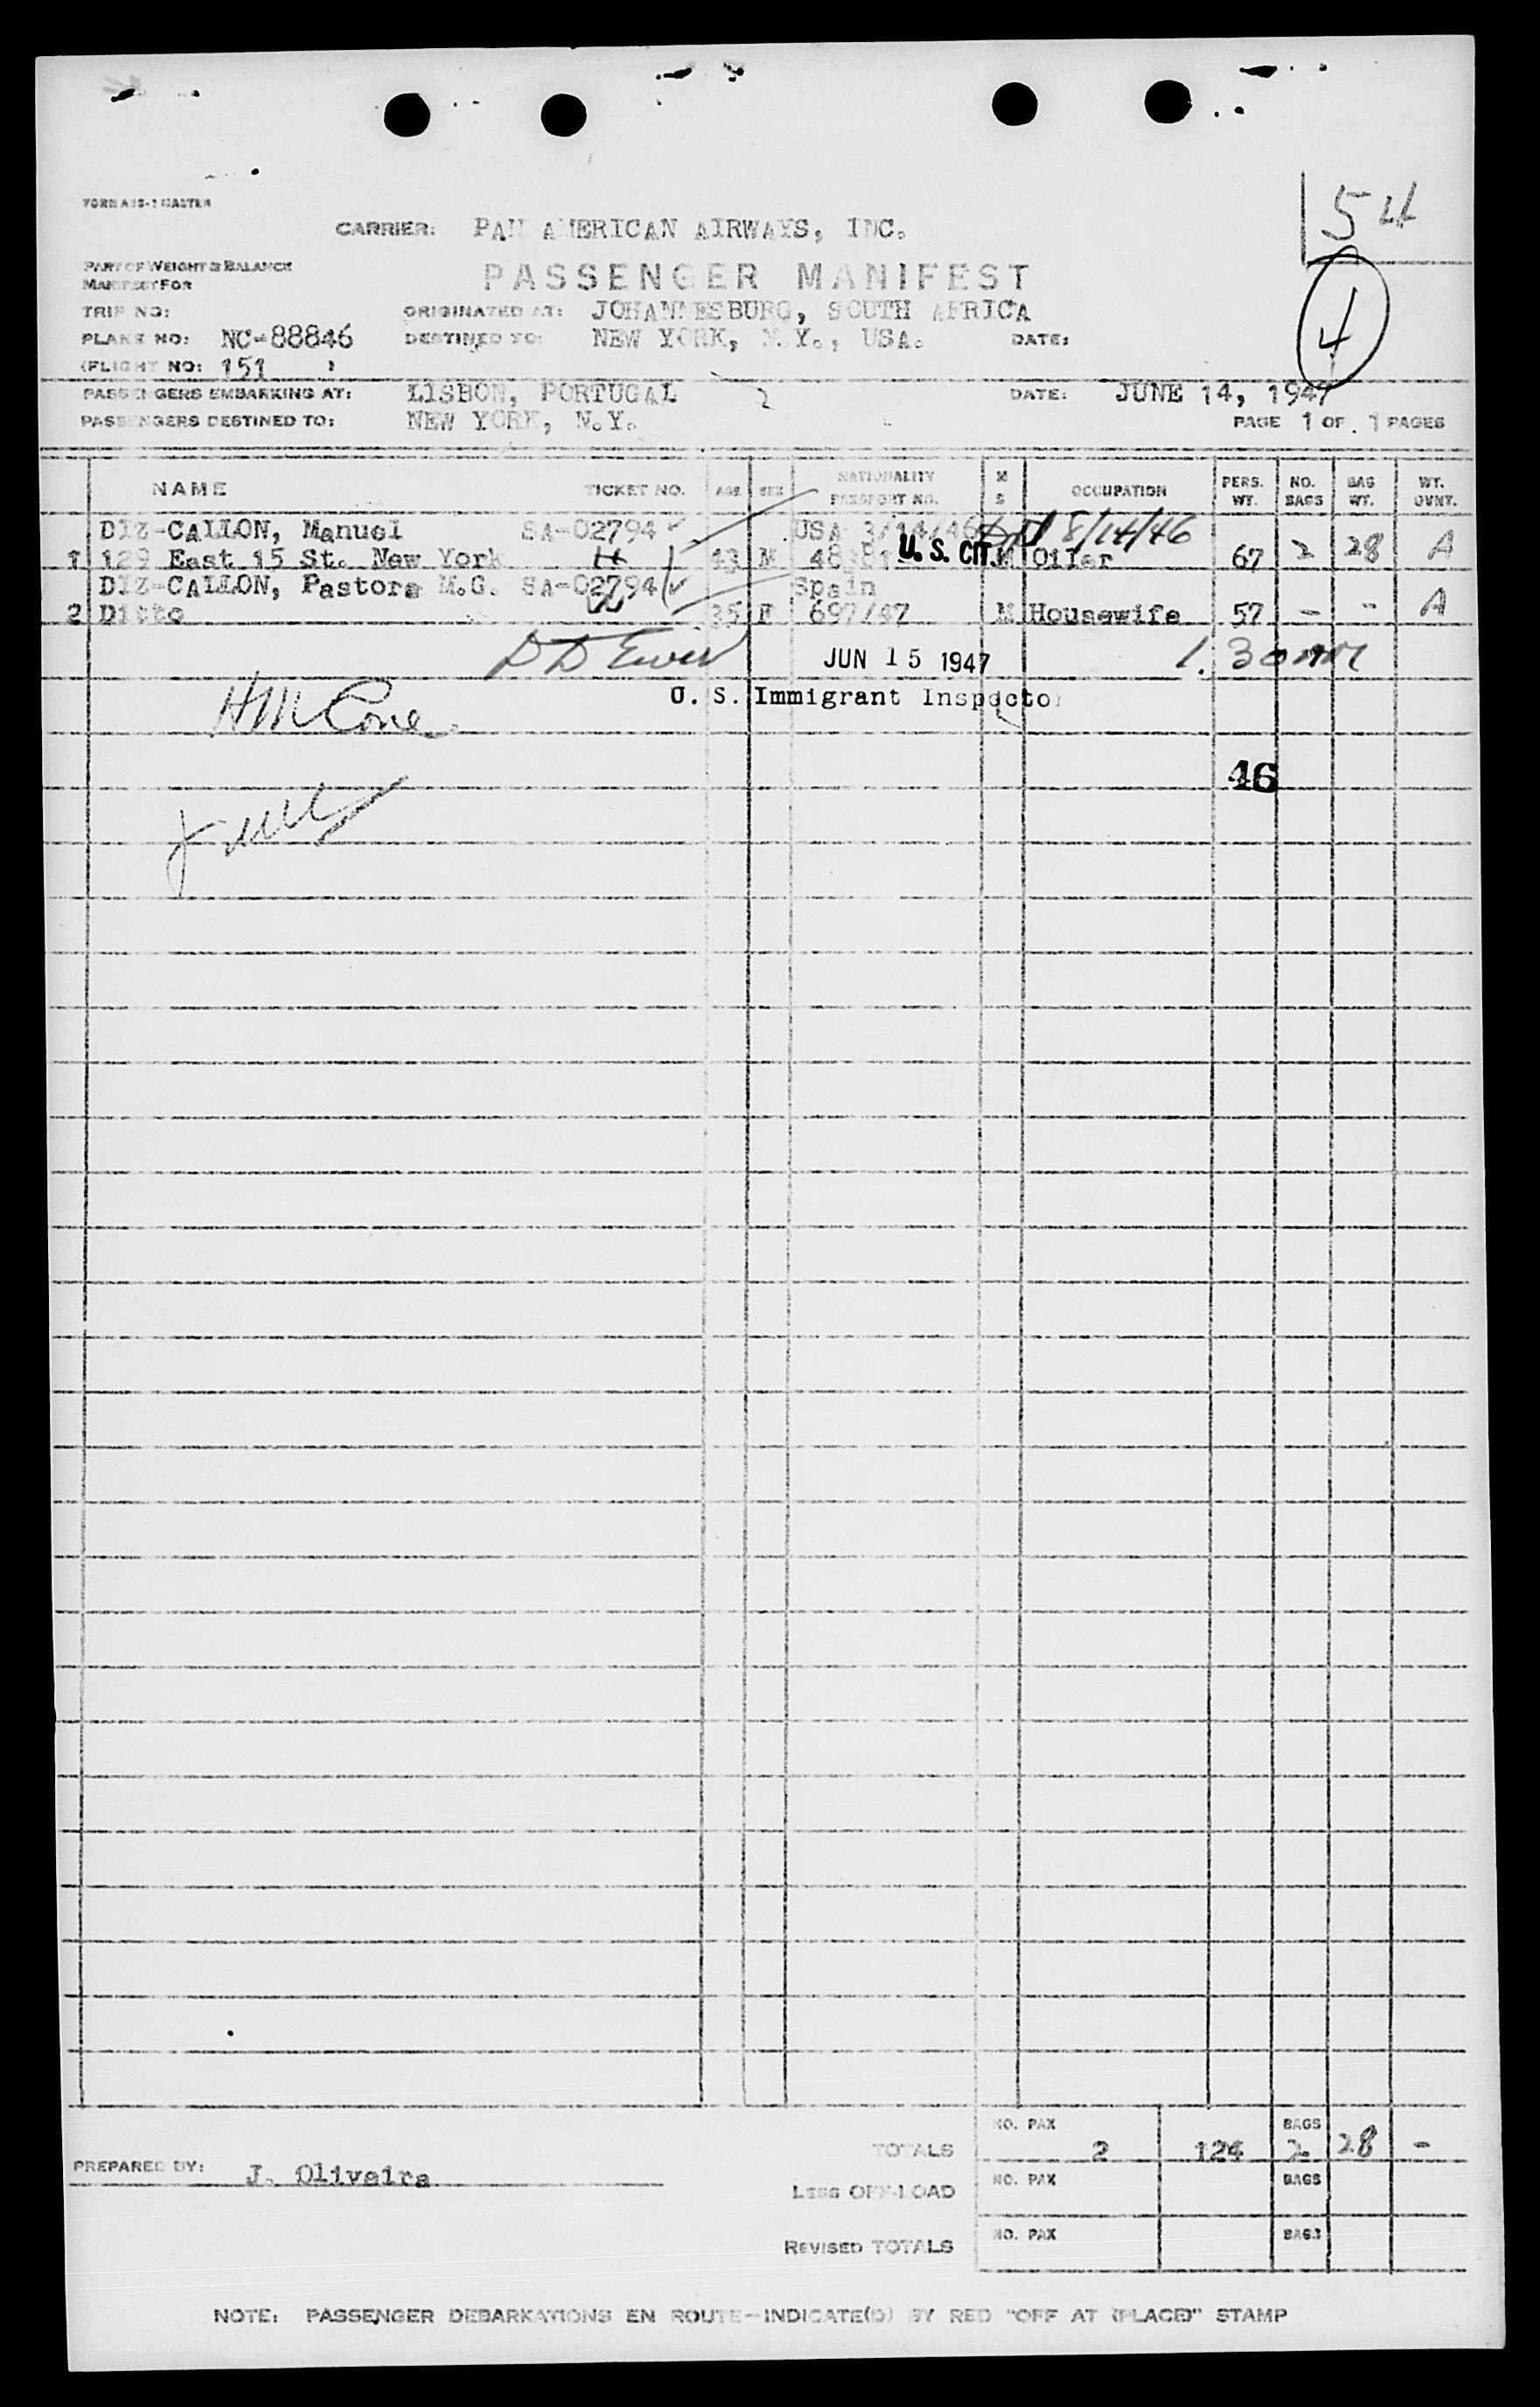 54
CARRIER: PAN AMERICAN AIRWAYS, INC.
4
PART OF WEIGHT & BALANCE
MANIFEST FOR
PASSENGER MANIFEST
TRIP NO: ORIGINATED AT: JOHANNESBURG, SOUTH AFRICA
PLANE NO: NC-88846 DESTINED TO: NEW YORK, N.Y., USA. DATE:
(FLIGHT NO: 151 )
PASSENGERS EMBARKING AT: LISBON, PORTUGAL 2 DATE: JUNE 14, 1947
PASSENGERS DESTINED TO: NEW YORK, N.Y. PAGE 1 OF 1 PAGES
NAME TICKET NO. AGE SEX NATIONALITY PASSPORT NO. M S OCCUPATION PERS. WT. NO. BAGS BAG WT. WT. OVNT.
DIZ-CALLON, Manuel SA-02794 USA 3/14/46 8/14/46
1 129 East 15 St. New York 43 M U.S. CIT. M Oiler 67 2 28 A
DIZ-CALLON, Pastora M.G. SA-02794 Spain
2 Ditto 35 F 697/47 M Housewife 57 - - A
JUN 15 1947 1.30
U. S. Immigrant Inspector
46
NO. PAX BAGS
TOTALS 2 124 2 28 -
PREPARED BY: J. Oliveira
NO. PAX BAGS
LESS OFF-LOAD
NO. PAX BAGS
REVISED TOTALS
NOTE: PASSENGER DEBARKATIONS EN ROUTE-INDICATE(D) BY RED "OFF AT (PLACE)" STAMP